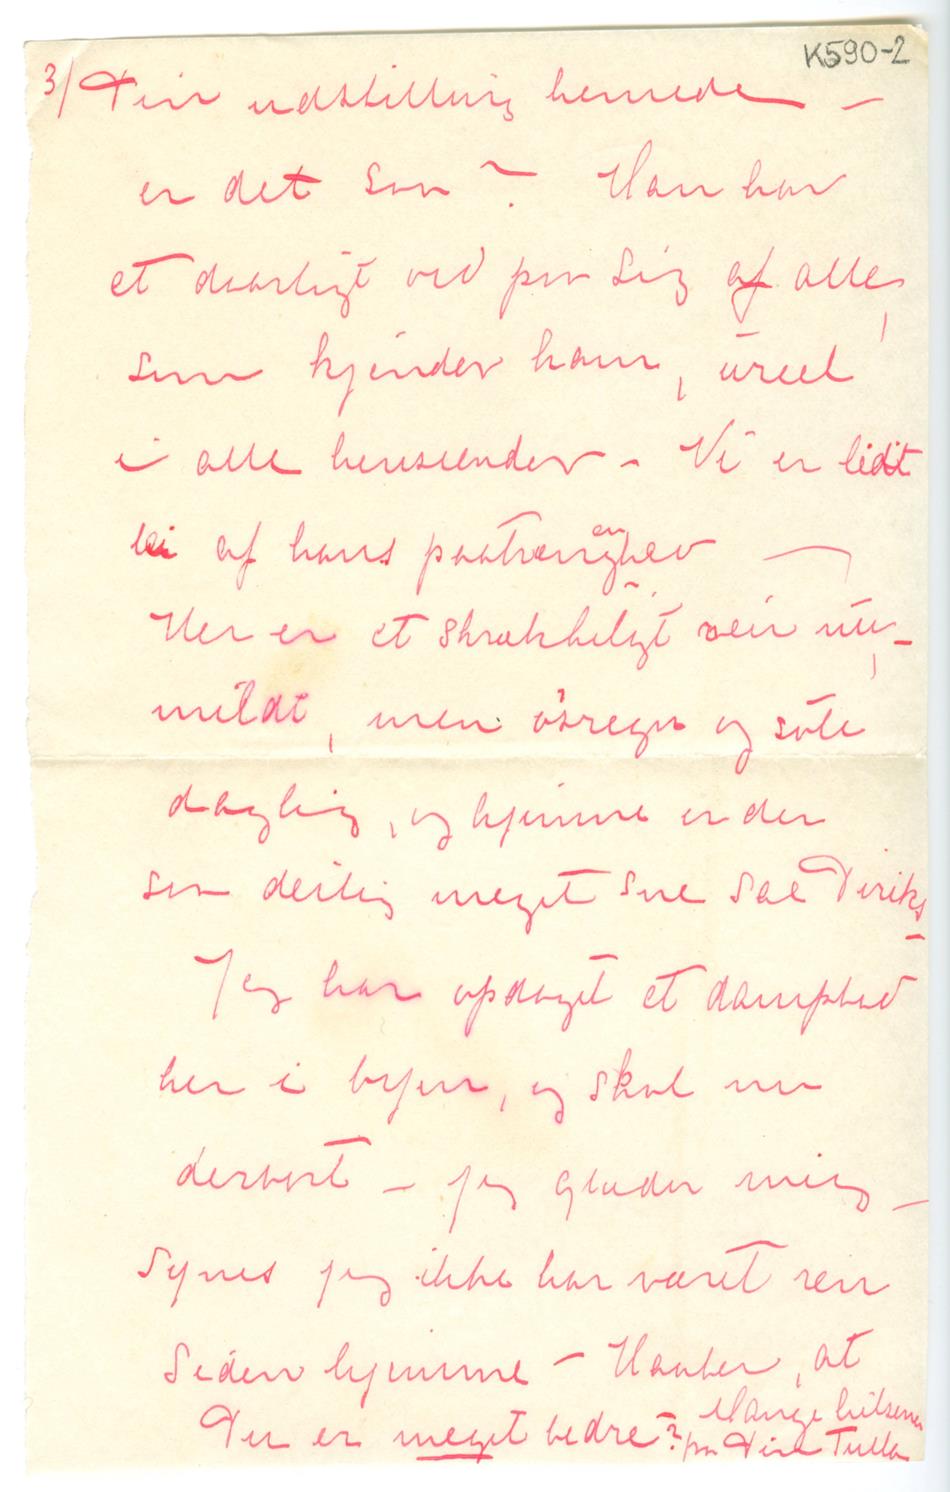 K590-2
3/ Din udstilling hernede –
er det saa? Han har
et daarligt ord paa sig af alle,
som kjender ham, ureel
i alle henseender – Vi er lidt
lei af hans paatrængenhed
Her er et skrækkeligt veir nu –
mildt, men øsregn og søle
daglig, og hjemme er der
saa deilig meget sne sae Diriks –
Jeg har opdaget et dampbad
her i byen, og skal nu
derbort – jeg glæder mig –
Synes jeg ikke har været ren
siden hjemme – Haaber, at
Du er meget bedre? Mange hilsener
fra Din Tulla